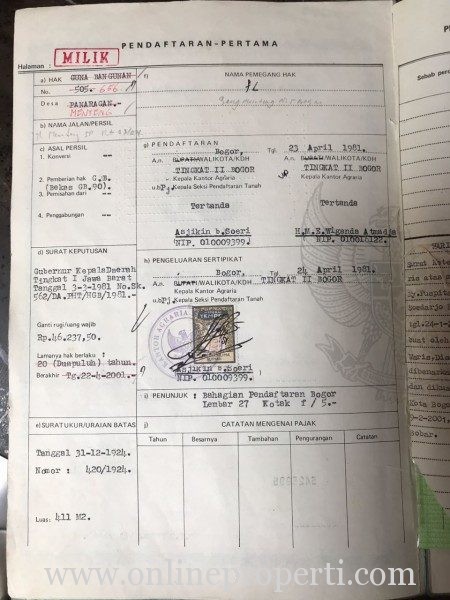 PENDAFTARAN-PERTAMA
Halaman :
MILIK
a) HAK GUNA BANGUNAN
No. 505. 666
Desa PANARAGAN.-
MENTENG
b) NAMA JALAN/PERSIL
c) ASAL PERSIL
1. Konversi --
2. Pemberian hak G.B.
(Bekas GB.90).
3. Pemisahan dari --
4. Penggabungan --
d) SURAT KEPUTUSAN
Gubernur KepalaDaerah
Tingkat I Jawa Barat
Tanggal 3-3-1981 No.Sk.
562/DA.PHT/HGB/1981.-
Ganti rugi/uang wajib
Rp.46.237,50
Lamanya hak berlaku :
20 (Duapuluh) tahun.
Berakhir Tg.22-4-2001.-
e) SURAT UKUR/URAIAN BATAS
Tanggal 31-12-1924.
Nomor : 420/1924.
Luas: 411 M2.
f) NAMA PEMEGANG HAK
g) PENDAFTARAN
Bogor, Tgl. 23 April 1981.
A.n. BUPATI/WALIKOTA/KDH
TINGKAT II BOGOR
Kepala Kantor Agraria
u.b. Pj. Kepala Seksi Pendaftaran Tanah
Tertanda
Asjikin b.Soeri
NIP. 010009399.
A.n. BUPATI/WALIKOTA/KDH
TINGKAT II BOGOR
Kepala Kantor Agraria
Tertanda
H.M.E.Wiganda Atmadja
NIP. 010016122.
h) PENGELUARAN SERTIPIKAT
Bogor, Tgl. 24 April 1981.
A.n. BUPATI/WALIKOTA/KDH TINGKAT II BOGOR
Kepala Kantor Agraria
u.b. Pj. Kepala Seksi Pendaftaran Tanah
KANTOR AGRARIA
TEMPEL
Asjikin b.Soeri
NIP. 010009399.
i) PENUNJUK : Bahagian Pendaftaran Bogor
Lembar 27 Kotak f / 5.-
j) CATATAN MENGENAI PAJAK
Tahun Besarnya Tambahan Pengurangan Catatan
Sebab perubahan
www.onlineproperti.com